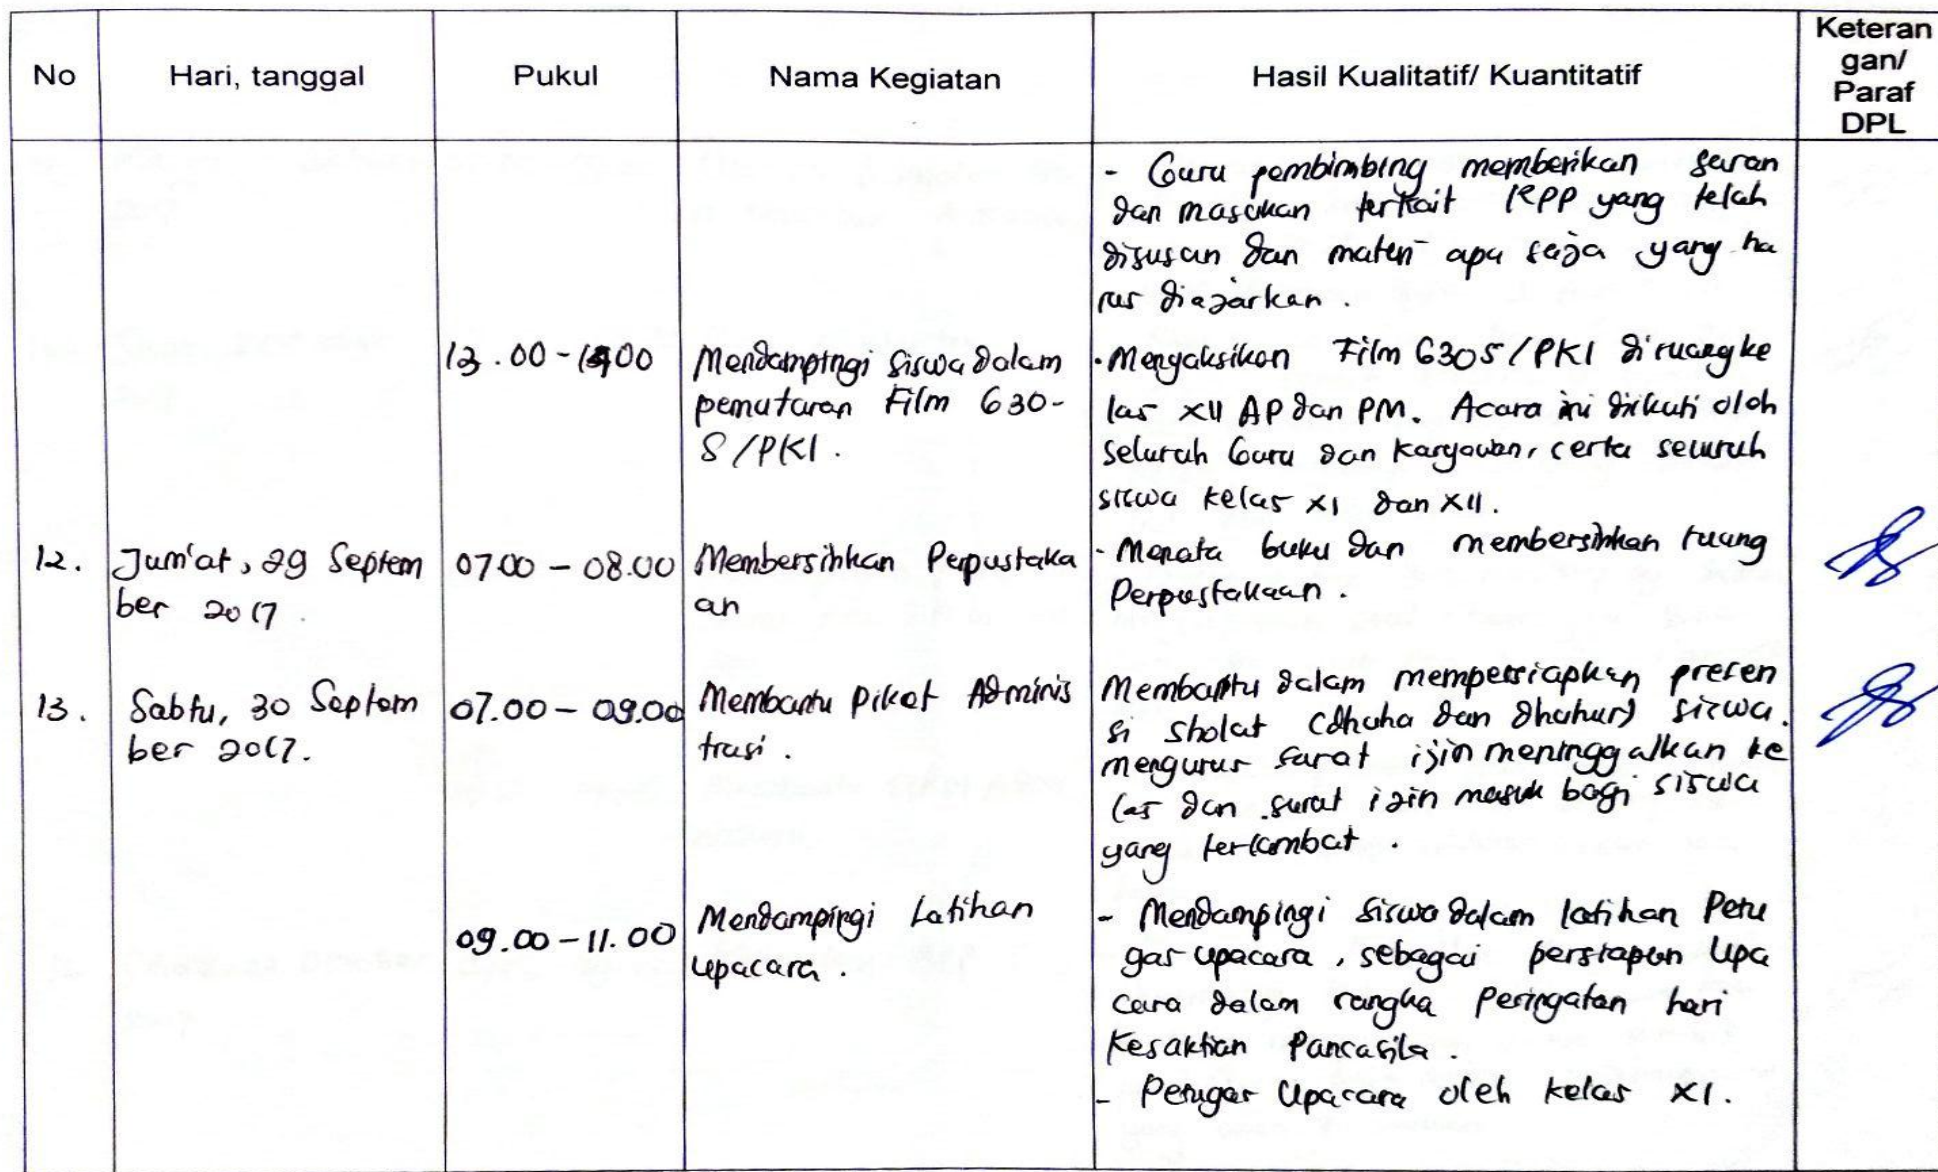 No Hari, tanggal Pukul Nama Kegiatan Hasil Kualitatif/ Kuantitatif Keteran
gan/
Paraf
DPL
- Guru pembimbing memberikan saran
dan masukan terkait RPP yang telah
disusun dan materi apa saja yang ha
rus diajarkan.
13.00 - 00
Mendampingi siswa dalam
pemutaran Film G30-
S/PKI.
- Menyaksikan Film G30S/PKI diruang ke
las XII AP dan PM. Acara ini diikuti oleh
seluruh Guru dan Karyawan, serta seluruh
siswa kelas XI dan XII.
12. Jum'at, 29 Septem
ber 2017.
07.00 - 08.00
Membersihkan Perpustaka
an
- Menata buku dan membersihkan ruang
Perpustakaan.
13. Sabtu, 30 Septem
ber 2017.
07.00 - 09.00
Membantu Piket Adminis
trasi.
Membantu dalam mempersiapkan presen
si sholat (dhuha dan dhuhur) siswa.
mengurus surat ijin meninggalkan ke
las dan surat izin masuk bagi siswa
yang terlambat.
09.00 - 11.00
Mendampingi Latihan
upacara.
- Mendampingi siswa dalam latihan Petu
gas upacara, sebagai persiapan Upa
cara dalam rangka Peringatan hari
Kesaktian Pancasila.
- Petugas Upacara oleh kelas XI.